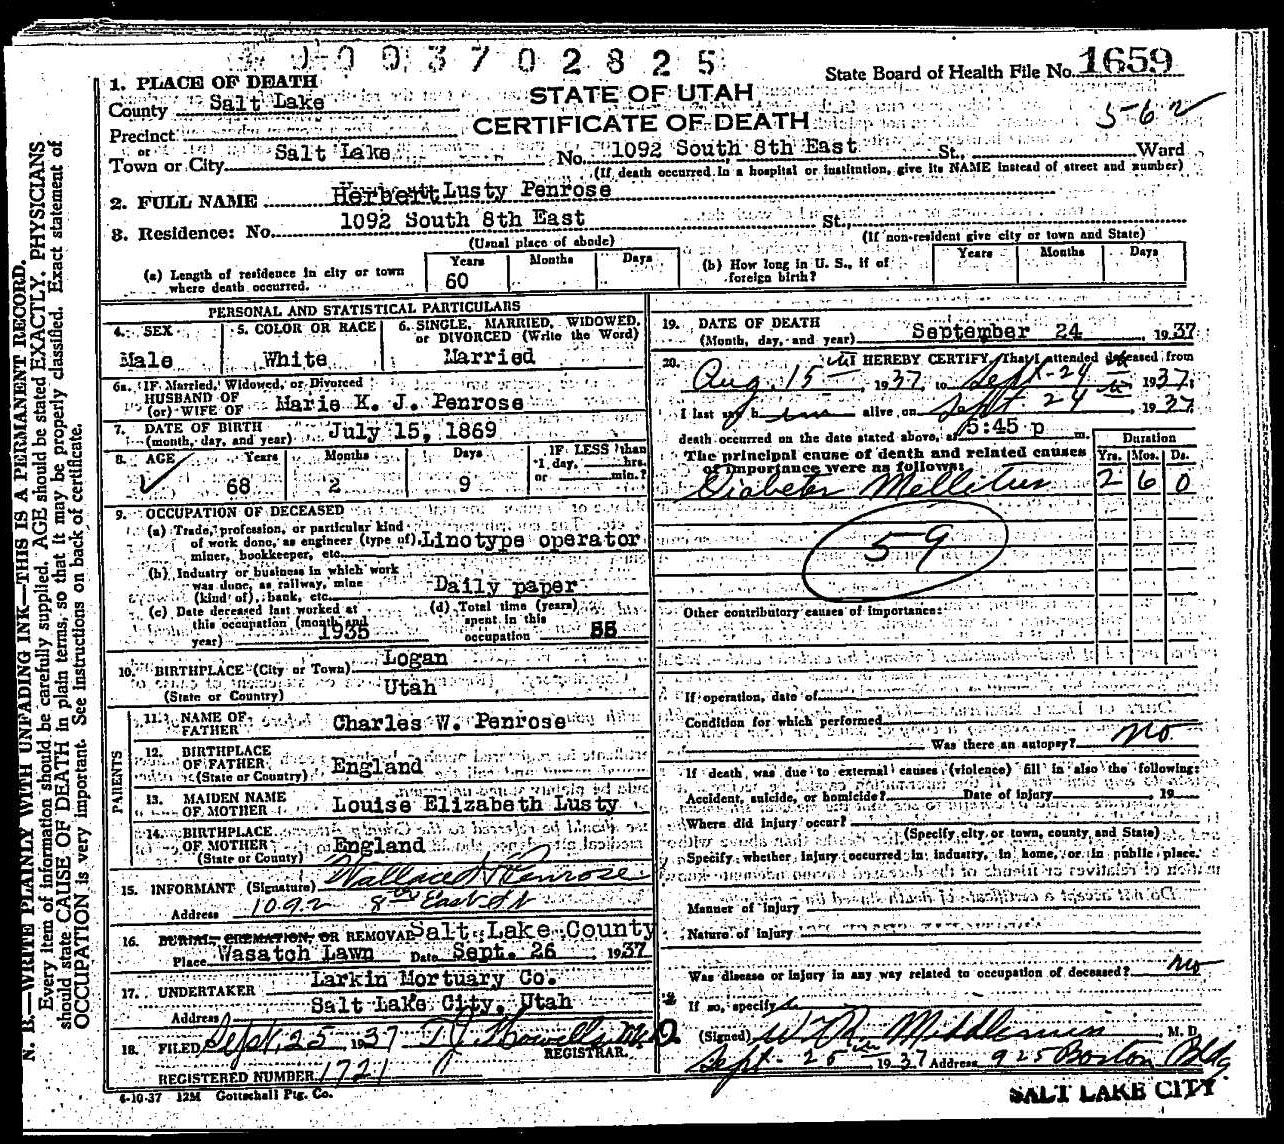 0003702825
State Board of Health File No. 1659
562
STATE OF UTAH
CERTIFICATE OF DEATH
1. PLACE OF DEATH
County Salt Lake
Precinct
or
Town or City Salt Lake No. 1092 South 8th East St., Ward
(If death occurred in a hospital or institution, give its NAME instead of street and number)
2. FULL NAME Herbert Lusty Penrose
3. Residence: No. 1092 South 8th East St.,
(Usual place of abode) (If non-resident give city or town and State)
(a) Length of residence in city or town where death occurred. Years 60 Months Days
(b) How long in U. S., if of foreign birth? Years Months Days
PERSONAL AND STATISTICAL PARTICULARS
4. SEX Male
5. COLOR OR RACE White
6. SINGLE, MARRIED, WIDOWED, or DIVORCED (Write the Word) Married
6a. IF Married, Widowed, or Divorced
HUSBAND OF
(or) WIFE OF Marie K. J. Penrose
7. DATE OF BIRTH
(month, day, and year) July 15, 1869
8. AGE Years 68 Months 2 Days 9 IF LESS than 1 day, hrs. or min.?
9. OCCUPATION OF DECEASED
(a) Trade, profession, or particular kind
of work done, as engineer (type of) Linotype operator
miner, bookkeeper, etc.
(b) Industry or business in which work
was done, as railway, mine
(kind of), bank, etc. Daily paper
(c) Date deceased last worked at
this occupation (month and
year) 1935
(d) Total time (years)
spent in this
occupation 55
10. BIRTHPLACE (City or Town) Logan
(State or Country) Utah
PARENTS
11. NAME OF FATHER Charles W. Penrose
12. BIRTHPLACE OF FATHER (State or Country) England
13. MAIDEN NAME OF MOTHER Louise Elizabeth Lusty
14. BIRTHPLACE OF MOTHER (State or Country) England
15. INFORMANT (Signature) Wallace L Penrose
Address 1092 8th East St
16. BURIAL, CREMATION, OR REMOVAL Salt Lake County
Place Wasatch Lawn Date Sept. 26, 1937
17. UNDERTAKER Larkin Mortuary Co.
Address Salt Lake City, Utah
18. FILED Sept. 25 1937 T. J. Howells M.D.
REGISTRAR.
REGISTERED NUMBER 1721
6-10-37 12M Gottschall Ptg. Co.
19. DATE OF DEATH
(Month, day, and year) September 24, 1937
20. I HEREBY CERTIFY, That I attended deceased from
Aug. 15 1937, to Sept. 24 1937;
I last saw him alive on Sept. 24, 1937
death occurred on the date stated above, at 5:45 p m.
The principal cause of death and related causes
of importance were as follows:
Duration
Yrs. Mos. Ds.
Diabetes Mellitus 2 6 0
59
Other contributory causes of importance:
If operation, date of
Condition for which performed
Was there an autopsy? no
If death was due to external causes (violence) fill in also the following:
Accident, suicide, or homicide? Date of injury , 19
Where did injury occur?
(Specify city or town, county and State)
Specify whether injury occurred in industry, in home, or in public place.
Manner of injury
Nature of injury
Was disease or injury in any way related to occupation of deceased? no
If so, specify
(Signed) Middlemiss M. D.
Sept. 25th 1937 Address 925 Boston Bldg
SALT LAKE CITY
N. B.—WRITE PLAINLY WITH UNFADING INK—THIS IS A PERMANENT RECORD.
Every item of information should be carefully supplied. AGE should be stated EXACTLY. PHYSICIANS
should state CAUSE OF DEATH in plain terms, so that it may be properly classified. Exact statement of
OCCUPATION is very important. See instructions on back of certificate.